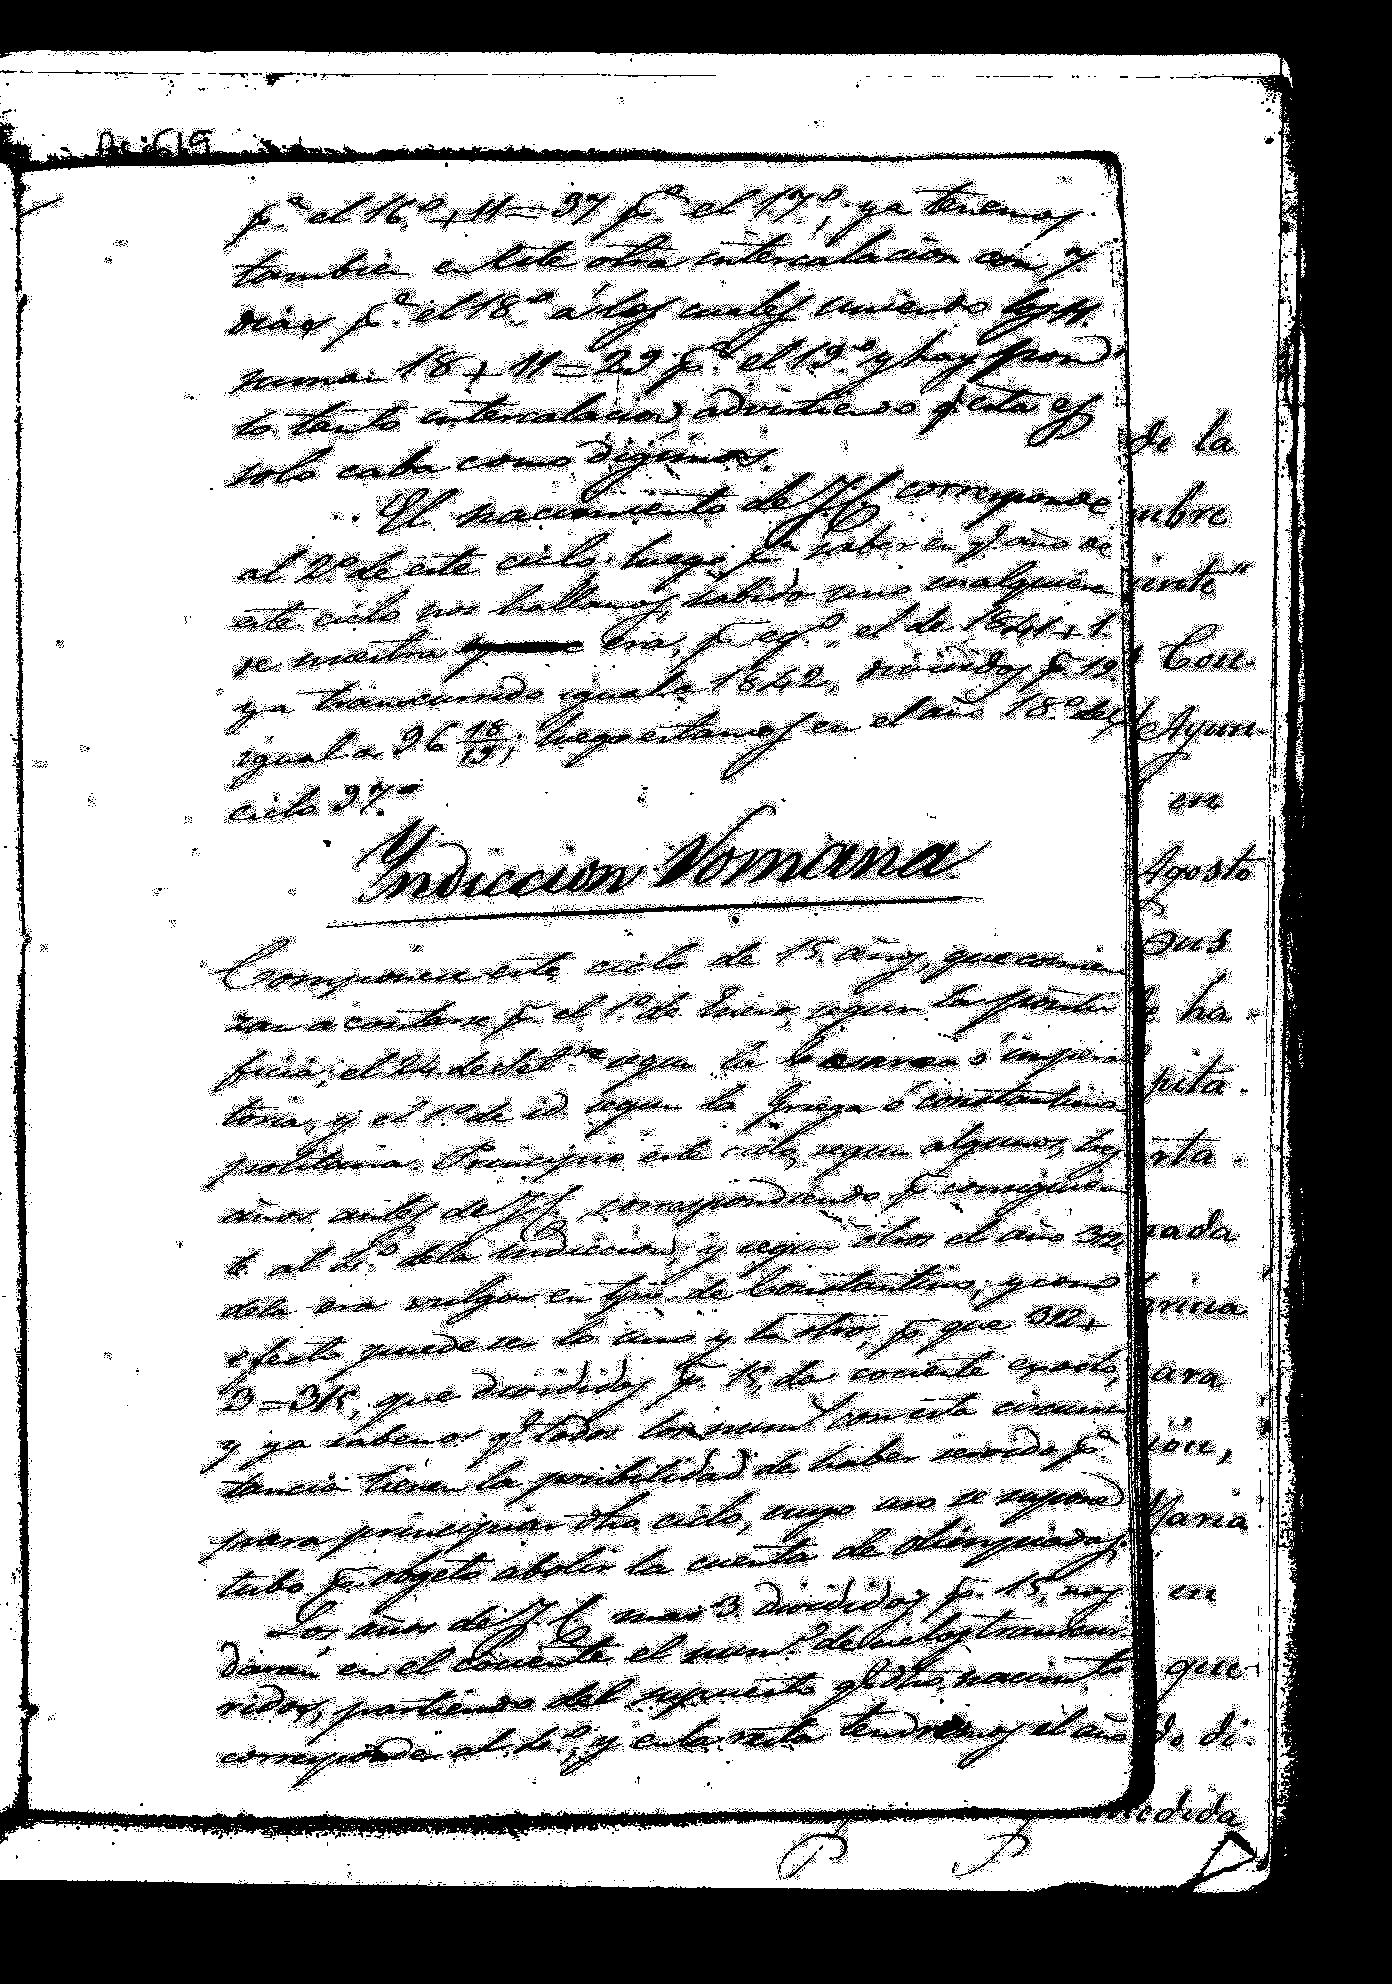 pª el 16.º + 11 = 37 pª el 17.º, ya tenemos
tambien en este otra intercalacion con 7
dias pª el 18.º á los cuales uniendo los 11.
suman 18 + 11 = 29 pª el 19.º y hay pr.
lo tanto intercalacion advirtiendo q. esta es
solo caba como digimos.
El nacimiento de J.C. corresponde
al 2.º de este ciclo: luego pª saber en q. año de
este ciclo nos hallamos, sabido uno cualquiera
de nuestra era, p. ej.º el de 1841 + 1
ya transcurrido igual a 1842, dividido p. 19
igual a 96 18/19, luego estamos en el año 18.º del
ciclo 97.º
Yndiccion Romana
Componese este ciclo de 15 años, que comien
zan a contarse p. el 1.º de Enero, segun la ponti
ficia; el 24 de Set.re segun la ó impera
toria, y el 1.º de id. segun la Griega ó constantino
politana. Principio este ciclo, segun algunos, tres
años antes de J.C. correspondiendo p. consiguien
te al 4.º de la indiccion, y segun otros el año 312
dela era vulgar en tpo. de Constantino; y como
efecto puede ser lo uno y lo otro, p. que 312 +
3 = 315, que divididos p. 15, da cociente exacto,
y ya sabemos q. todos los num.s con esta circuns
tancia tienen la posibilidad de haber servido pª
para principiar otro ciclo, cuyo uso se supone
tubo p. objeto abolir la cuenta de olimpiadas,
Los años de J.C. mas 3 divididos p. 15, nos
daran en el cociente el num.º de ciclos transcur
ridos, partiendo del supuesto q. dho. nacim.to
corresponde al 4.º, y en la resta tendremos el año
de la
mbre
Con-
Ayun-
en
Agosto
Sus
ha-
pita-
rta-
nada
ara
ion,
Maria
en
que
do di-
medida